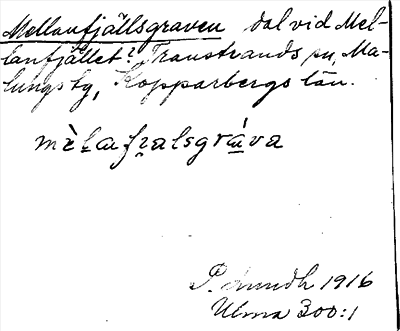 Mellanfjällsgraven dal vid Mel-
lanfjället? Transtrands sn, Ma-
lungs tg, Kopparbergs län.
P. Lundh 1916
Ulma 300:1